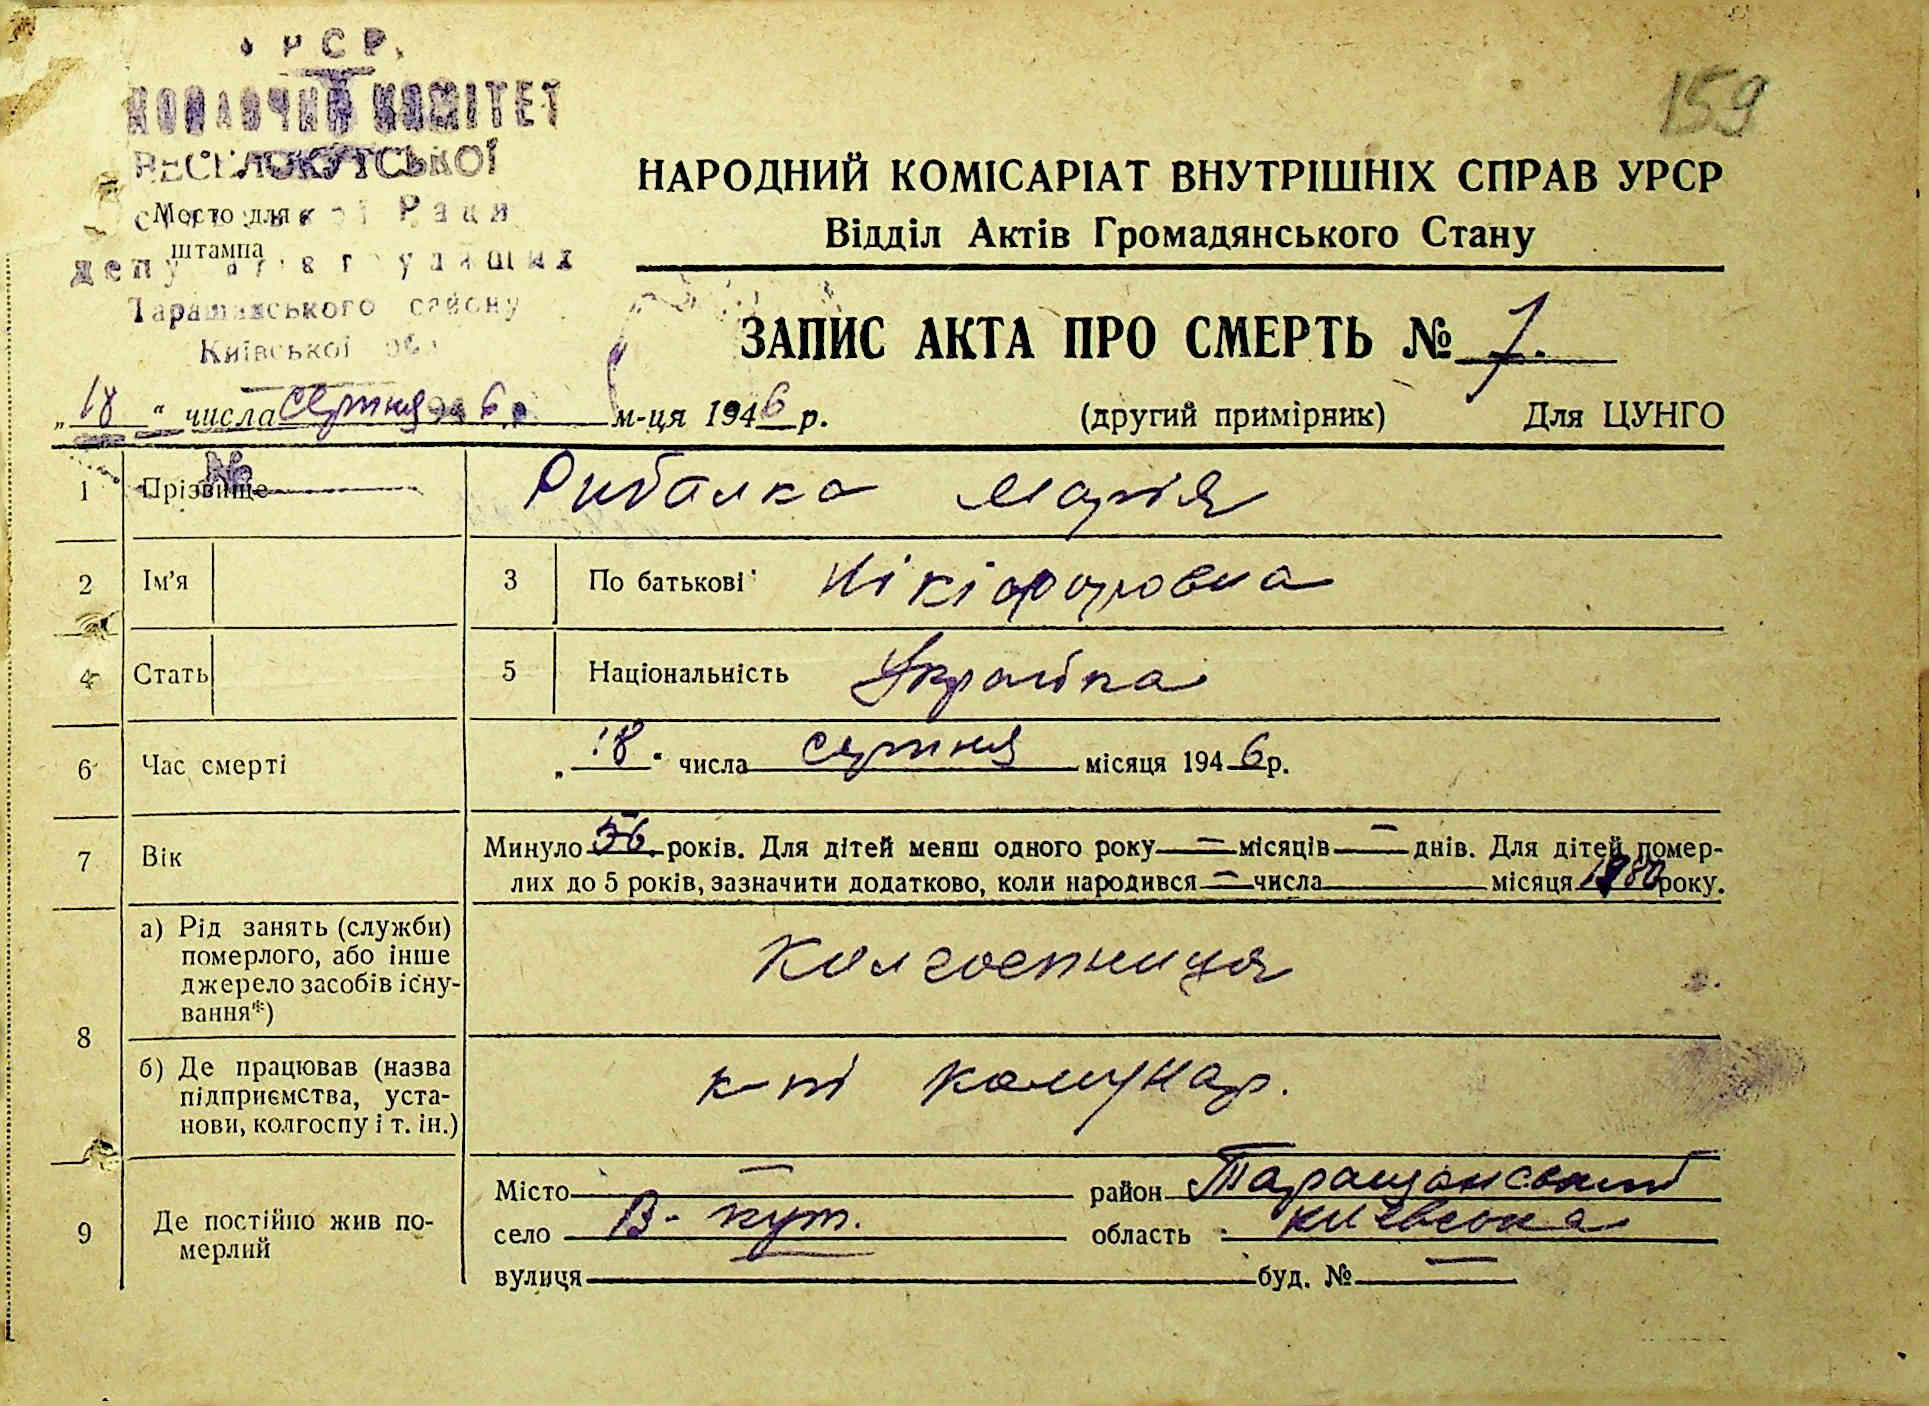 УРСР.
ВИКОНАВЧИЙ КОМІТЕТ
ВЕСЕЛОКУТСЬКОЇ
Сільської Ради
Место для
штампа
депутатів трудящих
Таращанського району
Київської обл.
159
НАРОДНИЙ КОМІСАРІАТ ВНУТРІШНІХ СПРАВ УРСР
Відділ Актів Громадянського Стану
ЗАПИС АКТА ПРО СМЕРТЬ № 7.
„18“ числа серпня м-ця 1946 р.
(другий примірник) Для ЦУНГО
№
1 Прізвище Рибалка Марія
2 Ім'я 3 По батькові Нікіфоровна
4 Стать 5 Національність Українка
6 Час смерті „18“ числа серпня місяця 1946 р.
7 Вік Минуло 56 років. Для дітей менш одного року — місяців — днів. Для дітей помер-
лих до 5 років, зазначити додатково, коли народився — числа місяця року.
8 а) Рід занять (служби) померлого, або інше джерело засобів існу-вання*) Колгоспниця
б) Де працював (назва підприємства, уста-нови, колгоспу і т. ін.) к-п Комунар.
9 Де постійно жив по-мерлий
Місто — район Таращанський
село В-Кут. область Киевська
вулиця буд. № —